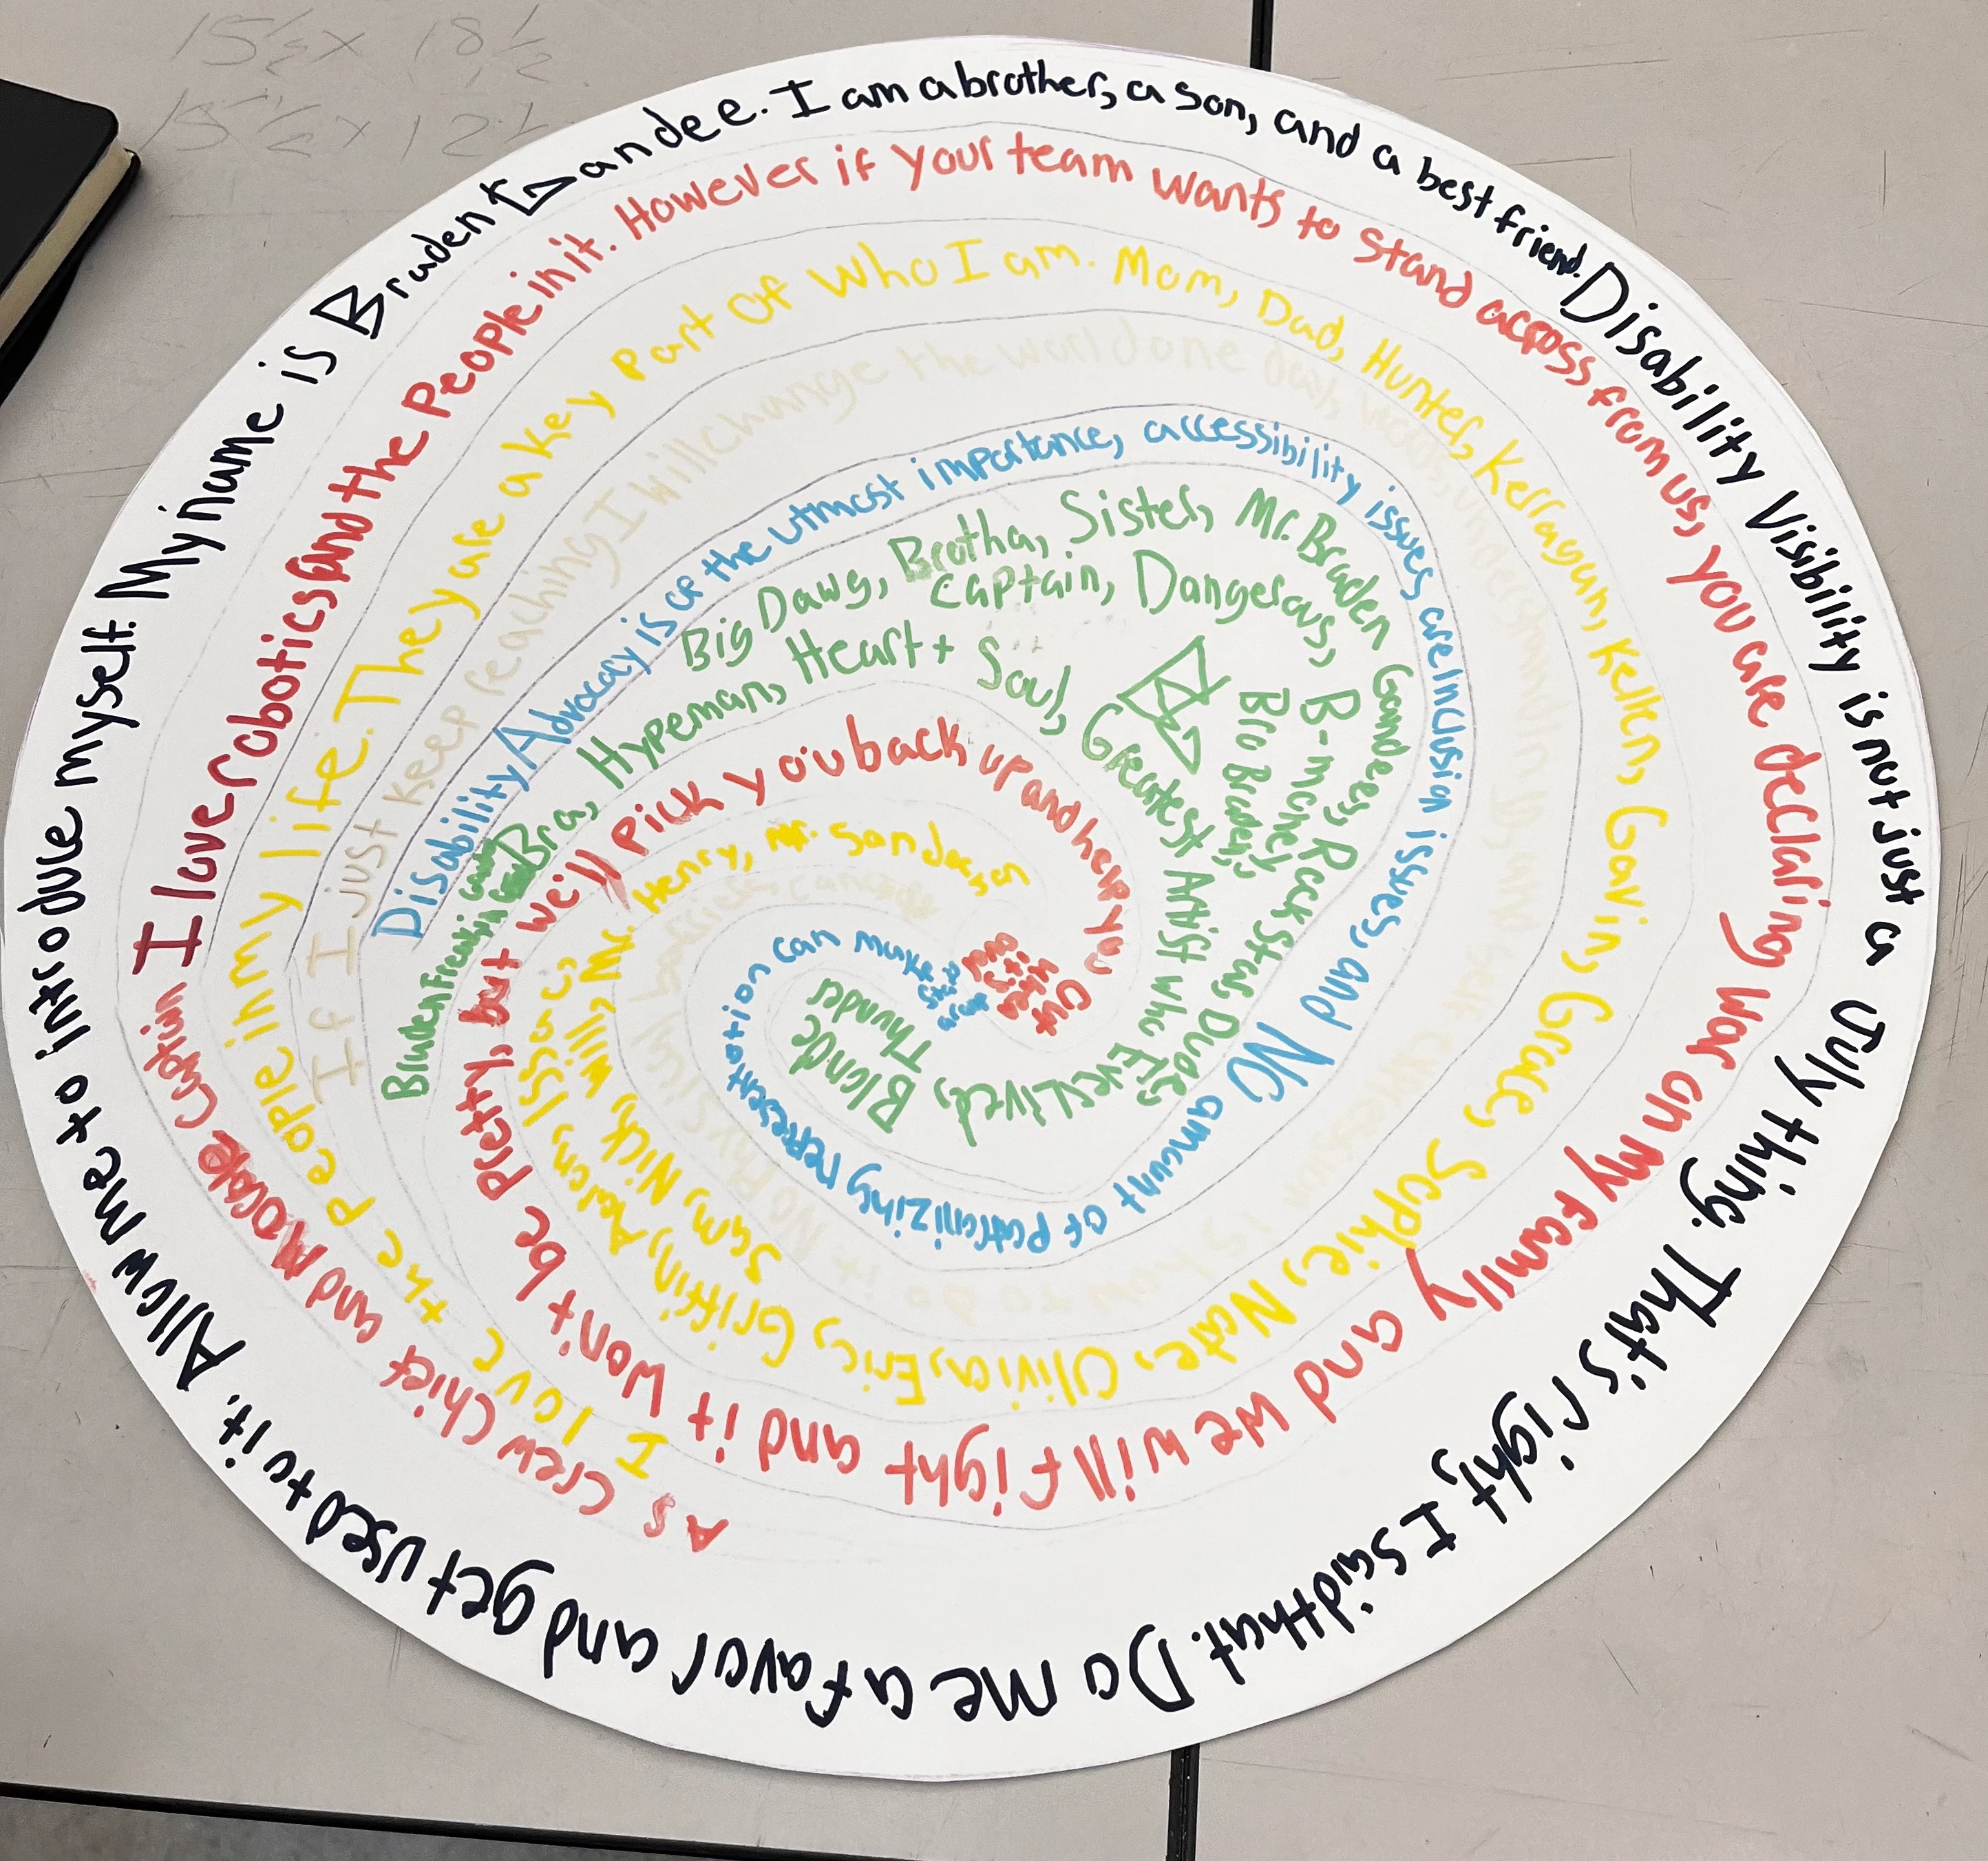 15 1/2 x 18 1/2
15 1/2 x 12 1/2
Allow me to introduce myself. My name is Braden Gandee. I am a brother, a son, and a best friend. Disability Visibility is not just a July thing. That's right, I said that. Do me a favor and get used to it.
As Crew Chief and Morale Captain I love robotics and the People in it. However if your team wants to stand across from us, you are declaring War on My family and we will fight and it won't be Pretty, but we'll pick you back up and help you
I love the People in my life. They are a key Part Of Who I am. Mom, Dad, Hunter, Kerragan, Kellen, Gavin, Grace, Sophie, Nate, Olivia, Eric, Griffin, Aalem, Sam, Nick, Will, Mr. Henry, Mr.
If I just keep reaching I will change the world one
Disability Advocacy is of the utmost importance, accessibility issues are inclusion issues, and NO amount of patronizing representation can
Braden
Bra, Hypeman, Heart + Soul, Greatest Artist who Ever Lived, Blonde Thunder
Big Dawg, Captain, Dangerous, B-money, Bro Braden,
Brotha, Sister, Mr. Braden Gandee, Rock Star,